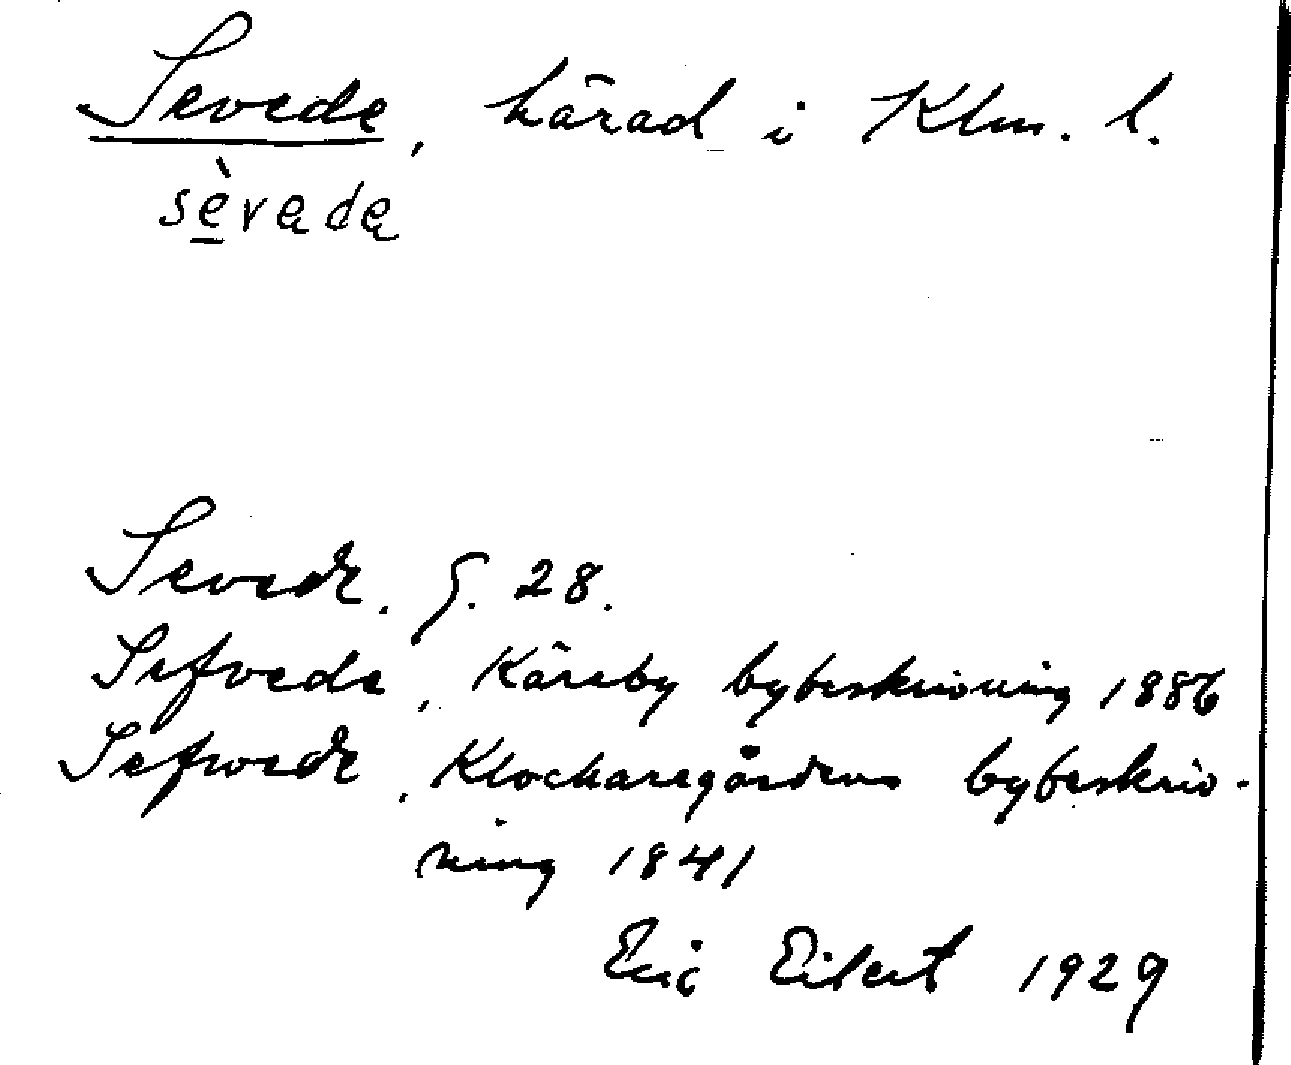 Sevede, härad i Klm. l.
sèvede
Sevede. G. 28.
Sefvede, Käreby bybeskrivning 1886
Sefwede, Klockaregårdens bybeskriv-
ning 1841
Eric Eilert 1929